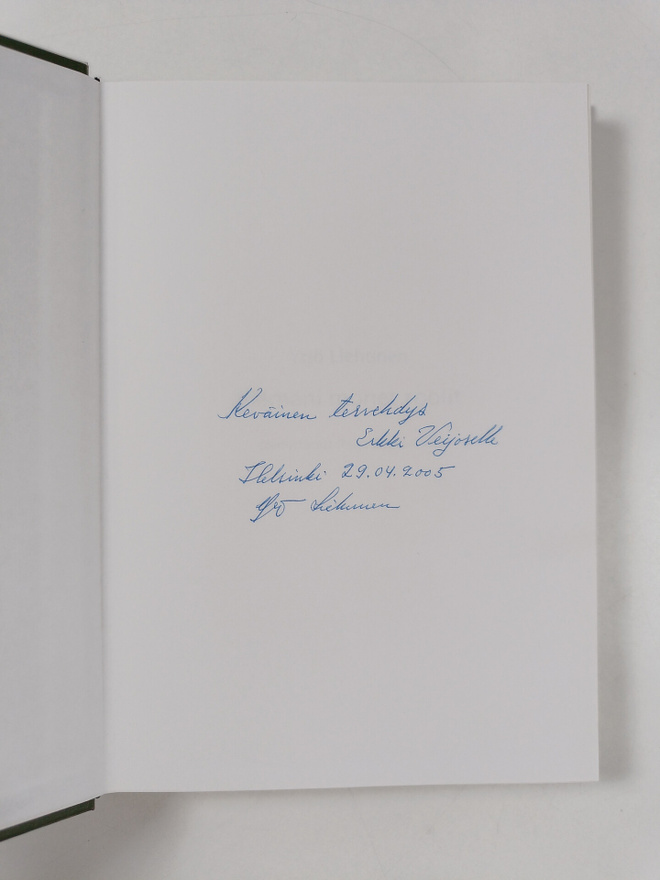 Keväinen tervehdys
Erkki Veijoselle
Helsinki 29.04.2005
Liehunen